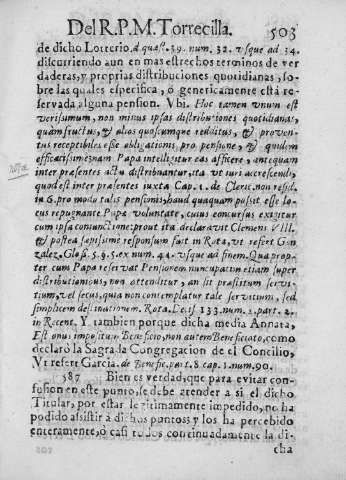 Del R. P. M. Torrecilla. 503
de dicho Lotterio, d. quæst. 39. num. 32. vsque ad 34.
discurriendo aun en mas estrechos terminos de ver
daderas, y proprias distribuciones quotidianas, so-
bre las quales especifica, ò genericamente està re-
servada alguna pension. Vbi. Hoc tamen vnum est
verissimum, non minus ipsas distributiones quotidianas,
quam fructus, & alios quoscumque redditus, & proven-
tus receptibiles esse obligationis pro pensione, & quidem
efficacissimè; nam Papa intelligitur eas afficere, antequam
inter præsentes actu distribuantur, ita vt iuri accrescendi,
quod est inter præsentes iuxta Cap. 1. de Cleric. non resid.
in 6. pro modo talis pensionis, haud quaquam possit esse lo-
cus repugnante Papæ voluntate, cuius concursus exigitur
cum ipsa coniunctione: prout ita declaravit Clemens VIII.
& postea sæpissime responsum fuit in Rota, vt refert Gon-
zalez, Glos. 5. §. 5. ex num. 41. vsque ad finem. Qua prop-
ter cum Papa reservat Pensionem nuncupatim etiam super
distributionibus, non attenditur, an sit præstitum servi-
tium, vel secus, quia non contemplatur tale servitium, sed
simplicem destinationem. Rota. Decis. 133. num. 2. part. 2.
in Recent. Y tambien porque dicha media Annata,
Est onus impositum Beneficio, non autem Beneficiato, como
declarò la Sagrada Congregacion de el Concilio,
Vt refert Garcia. de Benefic. part. 8. cap. 1. num. 90.
587 Bien es verdad, que para evitar con-
fusion en este punto, se debe atender à si el dicho
Titular, por estar legitimamente impedido, no ha
podido assistir à dichos puntos; y los ha percebido
enteramente, ò casi todos continuadamente la di-
cha